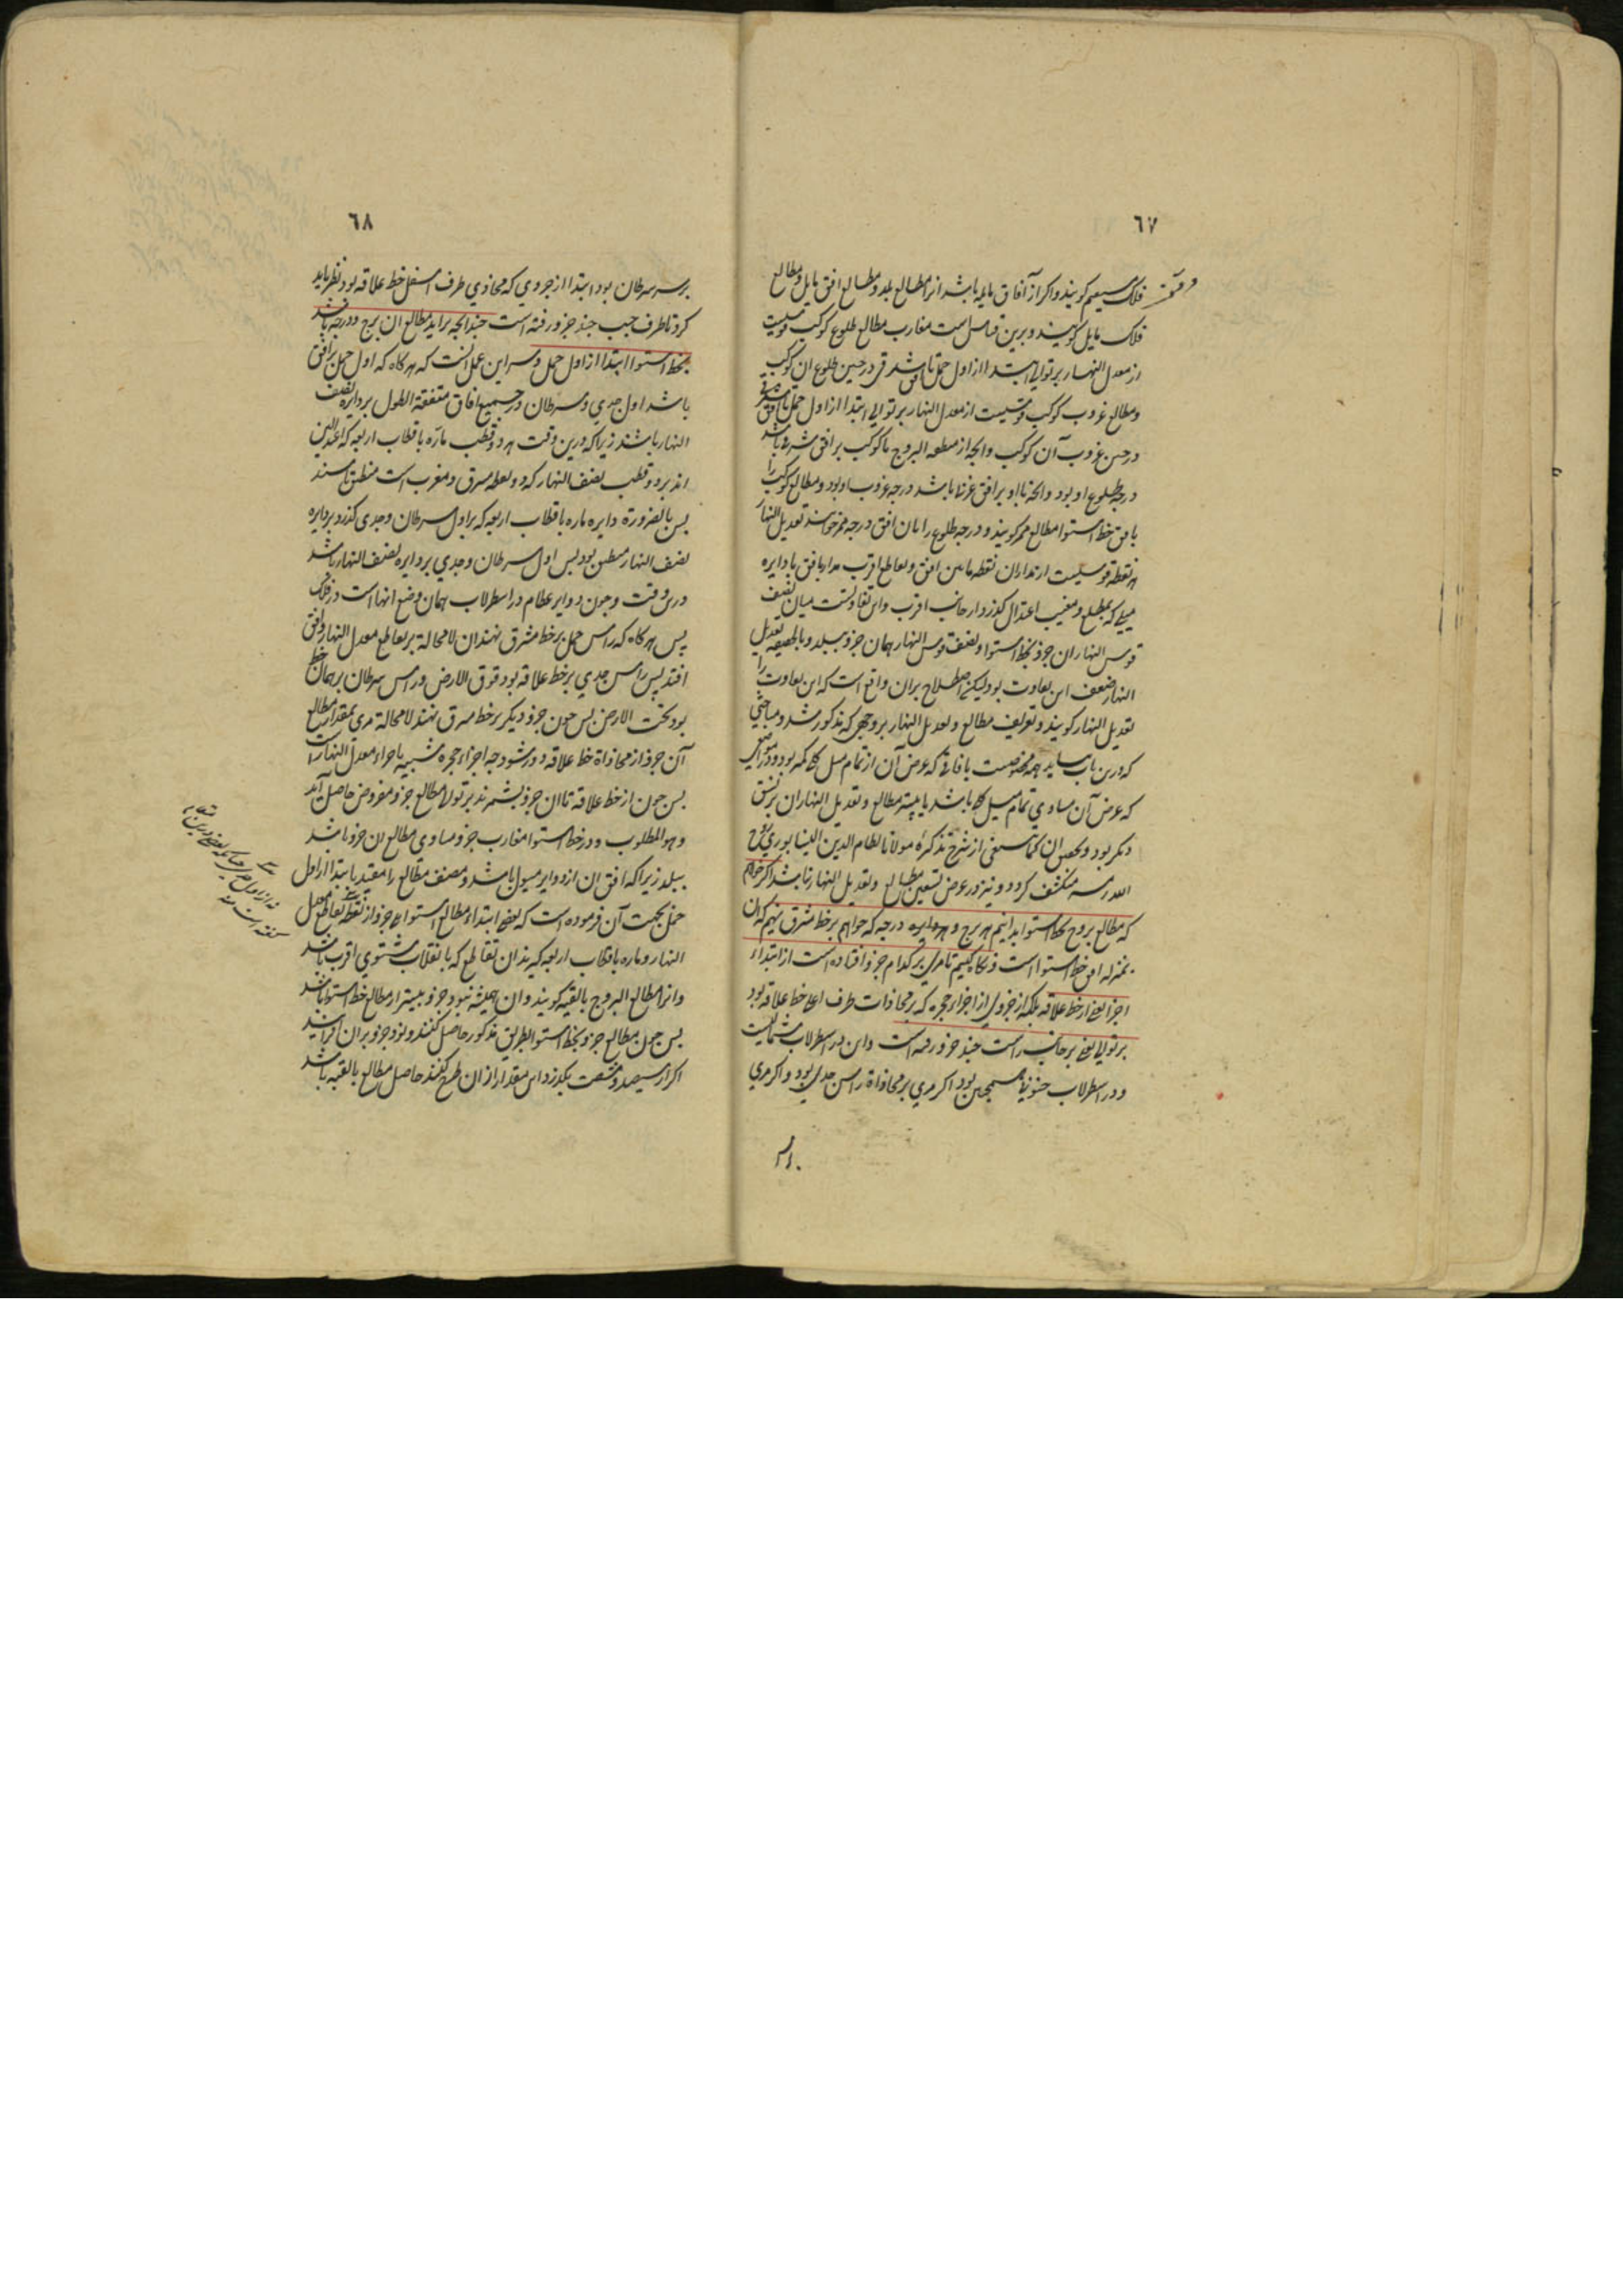 ٦٧
فلک مستقیم کویند واکر از آفاق مایله باشد انرا مطالع بلد و مطالع افق مایل و مطالع
فلک مایل کویند و برین قیاس است مغارب مطالع طلوع کوکب قوسیست
از معدل النهار بر توالی ابتدا از اول حمل تا افق شرقی در حین طلوع ان کوکب
ومطالع غروب کوکب قوسیست از معدل النهار بر توالی ابتدا از اول حمل تا افق شرقی
در حین غروب آن کوکب وانچه از منطقه البروج با کوکب بر افق شرقی باشد
درجه طلوع او بود وانچه با او بر افق غربی باشد درجه غروب او بود ومطالع کوکب را
بافق خط استوا مطالع ممر کویند و درجه طلوع را بان افق درجه ممر خوانند تعدیل النهار
هر نقطه قوسیست از مدار ان نقطه مابین افق و تقاطع اقرب مدار با افق با دایره
میلی که بمطلع و مغیب اعتدال کذرد از جانب اقرب واین تفاوتست میان نصف
قوس النهار ان جزو بخط استوا و نصف قوس النهار همان جزو ببلد وبالحقیقه تعدیل
النهار ضعف این تفاوت بود لیکن اصطلاح بران واقع است که این تفاوت را
تعدیل النهار کویند وتعریف مطالع وتعدیل النهار بر وجهی که مذکور شد و مباحثی
که درین باب بیاید همه مخصوصست بافاقی که عرض آن از تمام میل کلی کمتر بود و در مواضعی
که عرض آن مساوی تمام میل کلی باشد یا بیشتر مطالع وتعدیل النهار ان بر نسق
دیکر بود وتحقیق ان کما ینبغی از شرح تذکرهٔ مولانا نظام الدین النیسابوری روح
الله رمسه منکشف کردد ونیز در عرض تسعین مطالع وتعدیل النهار نباشد اکر خواهیم
که مطالع بروج بخط استوا بدانیم هر برج و هر درجه که خواهیم بر خط مشرق نهیم که ان
بمنزله افق خط استوا است ونکاه کنیم تا مری بر کدام جزو افتاده است از ابتداء
اجزا یعنی از خط علاقه بلکه از جزوی از اجزاء حجره که بر محاذات طرف اعلی خط علاقه بود
بر توالی یعنی بر جانب راست چند جزو رفته است واین در اسطرلاب شمالیست
ودر اسطرلاب جنوبی همچنین بود اکر مری بر محاذاة راس جدی بود واکر مری
٦٨
بر سر سرطان بود ابتدا از جزوی که محاذی طرف اسفل خط علاقه بود نظر باید
کرد تا طرف جیب چند جزو رفته است چندانچه براید مطالع ان برج و درجه باشد
بخط استوا ابتدا از اول حمل وسر این عمل انست که هرکاه که اول حمل بر افق
باشد اول جدی وسرطان در جمیع افاق متفقة الطول بر دایره نصف
النهار باشند زیرا که درین وقت هر دو قطب مارّه باقطاب اربعه که اعتدالین
اند بر دو قطب نصف النهار که دو نقطه مشرق ومغرب است منطبق باشند
پس بالضرورة دایره ماره باقطاب اربعه که بر اول سرطان وجدی کذرد بر دایره
نصف النهار منطبق بود پس اول سرطان وجدی بر دایره نصف النهار باشد
درین وقت وچون دوایر عظام در اسطرلاب بهمان وضع انهاست در فلک
پس هرکاه که راس حمل بر خط مشرق نهند ان لا محالة بر تقاطع معدل النهار وافق
افتد پس راس جدی بر خط علاقه بود فوق الارض وراس سرطان بر همان خط
بود تحت الارض پس چون جزو دیکر بر خط مشرق نهند لا محالة مری بمقدار مطالع
آن جزو از محاذاة خط علاقه دور شود چه اجزاء حجره شبیه باجزاء معدل النهار است
پس چون از خط علاقه تا ان جزو بشمرند بر توالی مطالع جزو مفروض حاصل آید
وهو المطلوب ودر خط استوا مغارب جزو مساوی مطالع ان جزو باشد
ببلد زیرا که افق ان از دوایر میول باشد ومصنف مطالع را مقید بابتدا از اول
حمل بجهت آن فرموده است که بعضی ابتداء مطالع استواء جزو از نقطه تقاطع معدل
النهار وماره باقطاب اربعه کیرند ان تقاطع که بانقلاب شتوی اقرب باشد
وانرا مطالع البروج بالقبه کویند وان همیشه نود جزو بیشتر از مطالع خط استوا باشد
پس چون مطالع جزو بخط استوا بطریق مذکور حاصل کنند و نود جزو بران افزایند
اکر از سیصد وشصت بکذرد این مقدار از ان طرح کنند حاصل مطالع بالقبه باشد